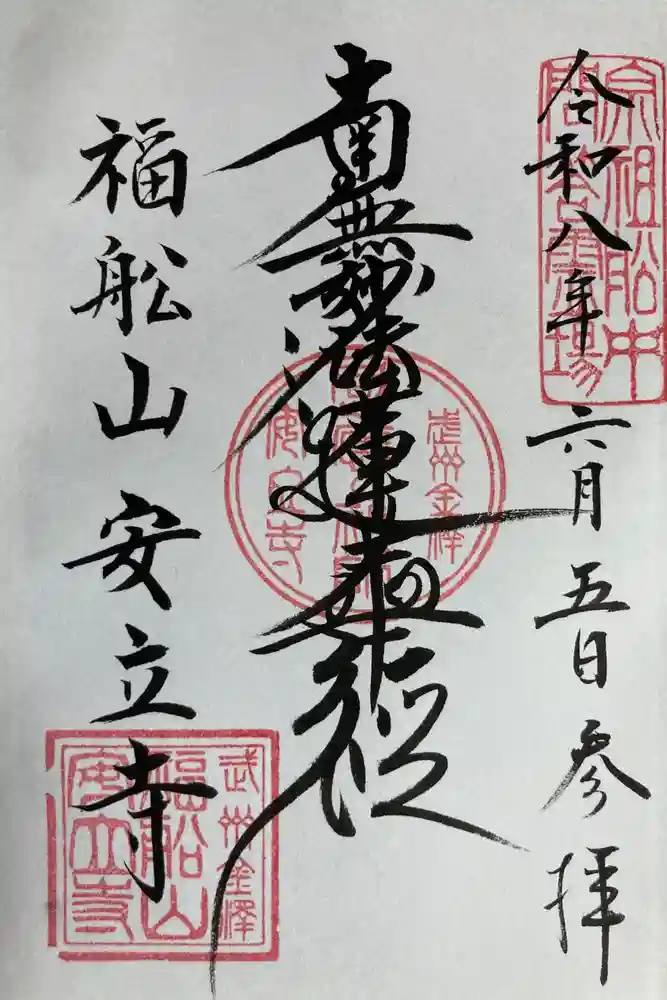 宗祖船中
問答霊場
令和八年六月五日参拝
南無妙法蓮華経
武州金澤
安立寺
福舩山安立寺
武州金澤
福船山
安立寺